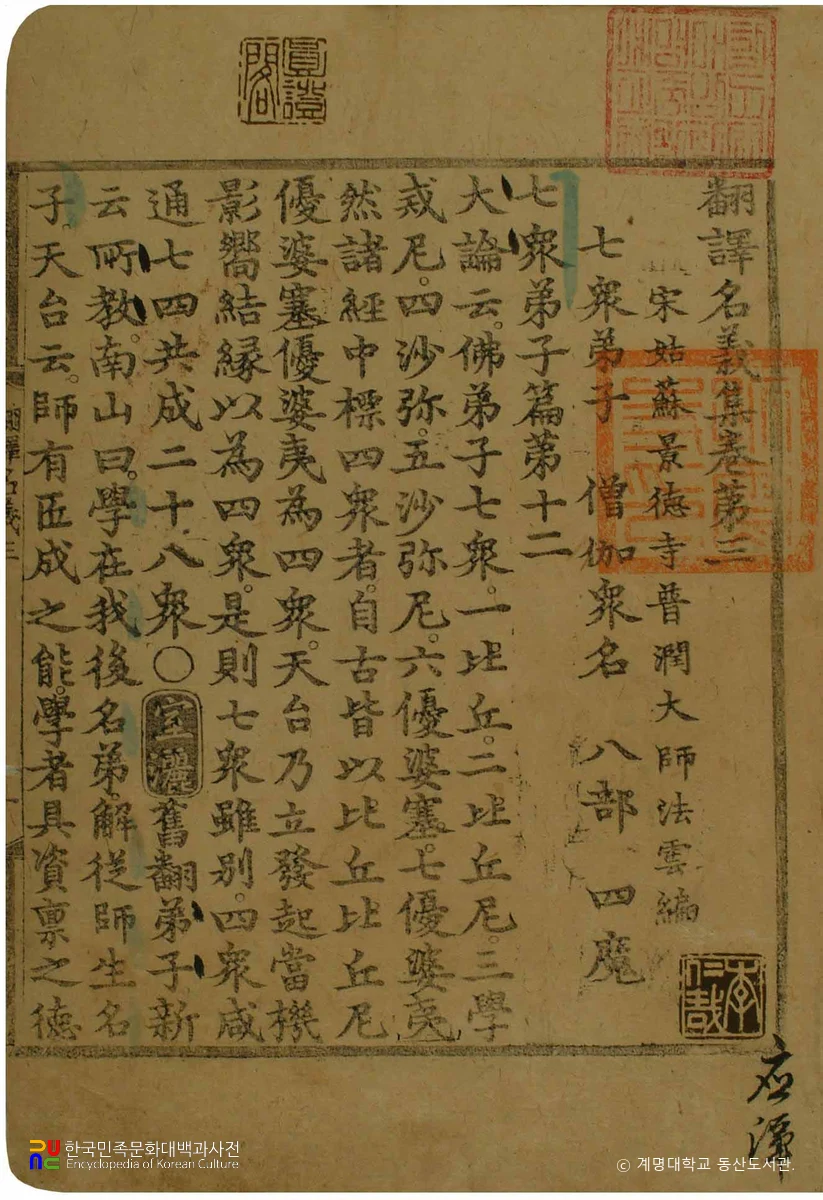 翻譯名義集卷第三
宋姑蘇景德寺普潤大師法雲編
七衆弟子 僧伽衆名 八部 四魔
七衆弟子篇第十二
大論云。佛弟子七衆。一比丘。二比丘尼。三學
戒尼。四沙弥。五沙弥尼。六優婆塞。七優婆夷
然諸經中標四衆者。自古皆以比丘比丘尼
優婆塞優婆夷為四衆。天台乃立發起當機
影嚮結緣以為四衆。是則七衆雖別。四衆咸
通七四共成二十八衆〇 舊翻弟子新
云所教。南山曰。學在我後名弟。解從師生名
子。天台云。師有匠成之能。學者具資稟之德
한국민족문화대백과사전
Encyclopedia of Korean Culture
© 계명대학교 동산도서관.